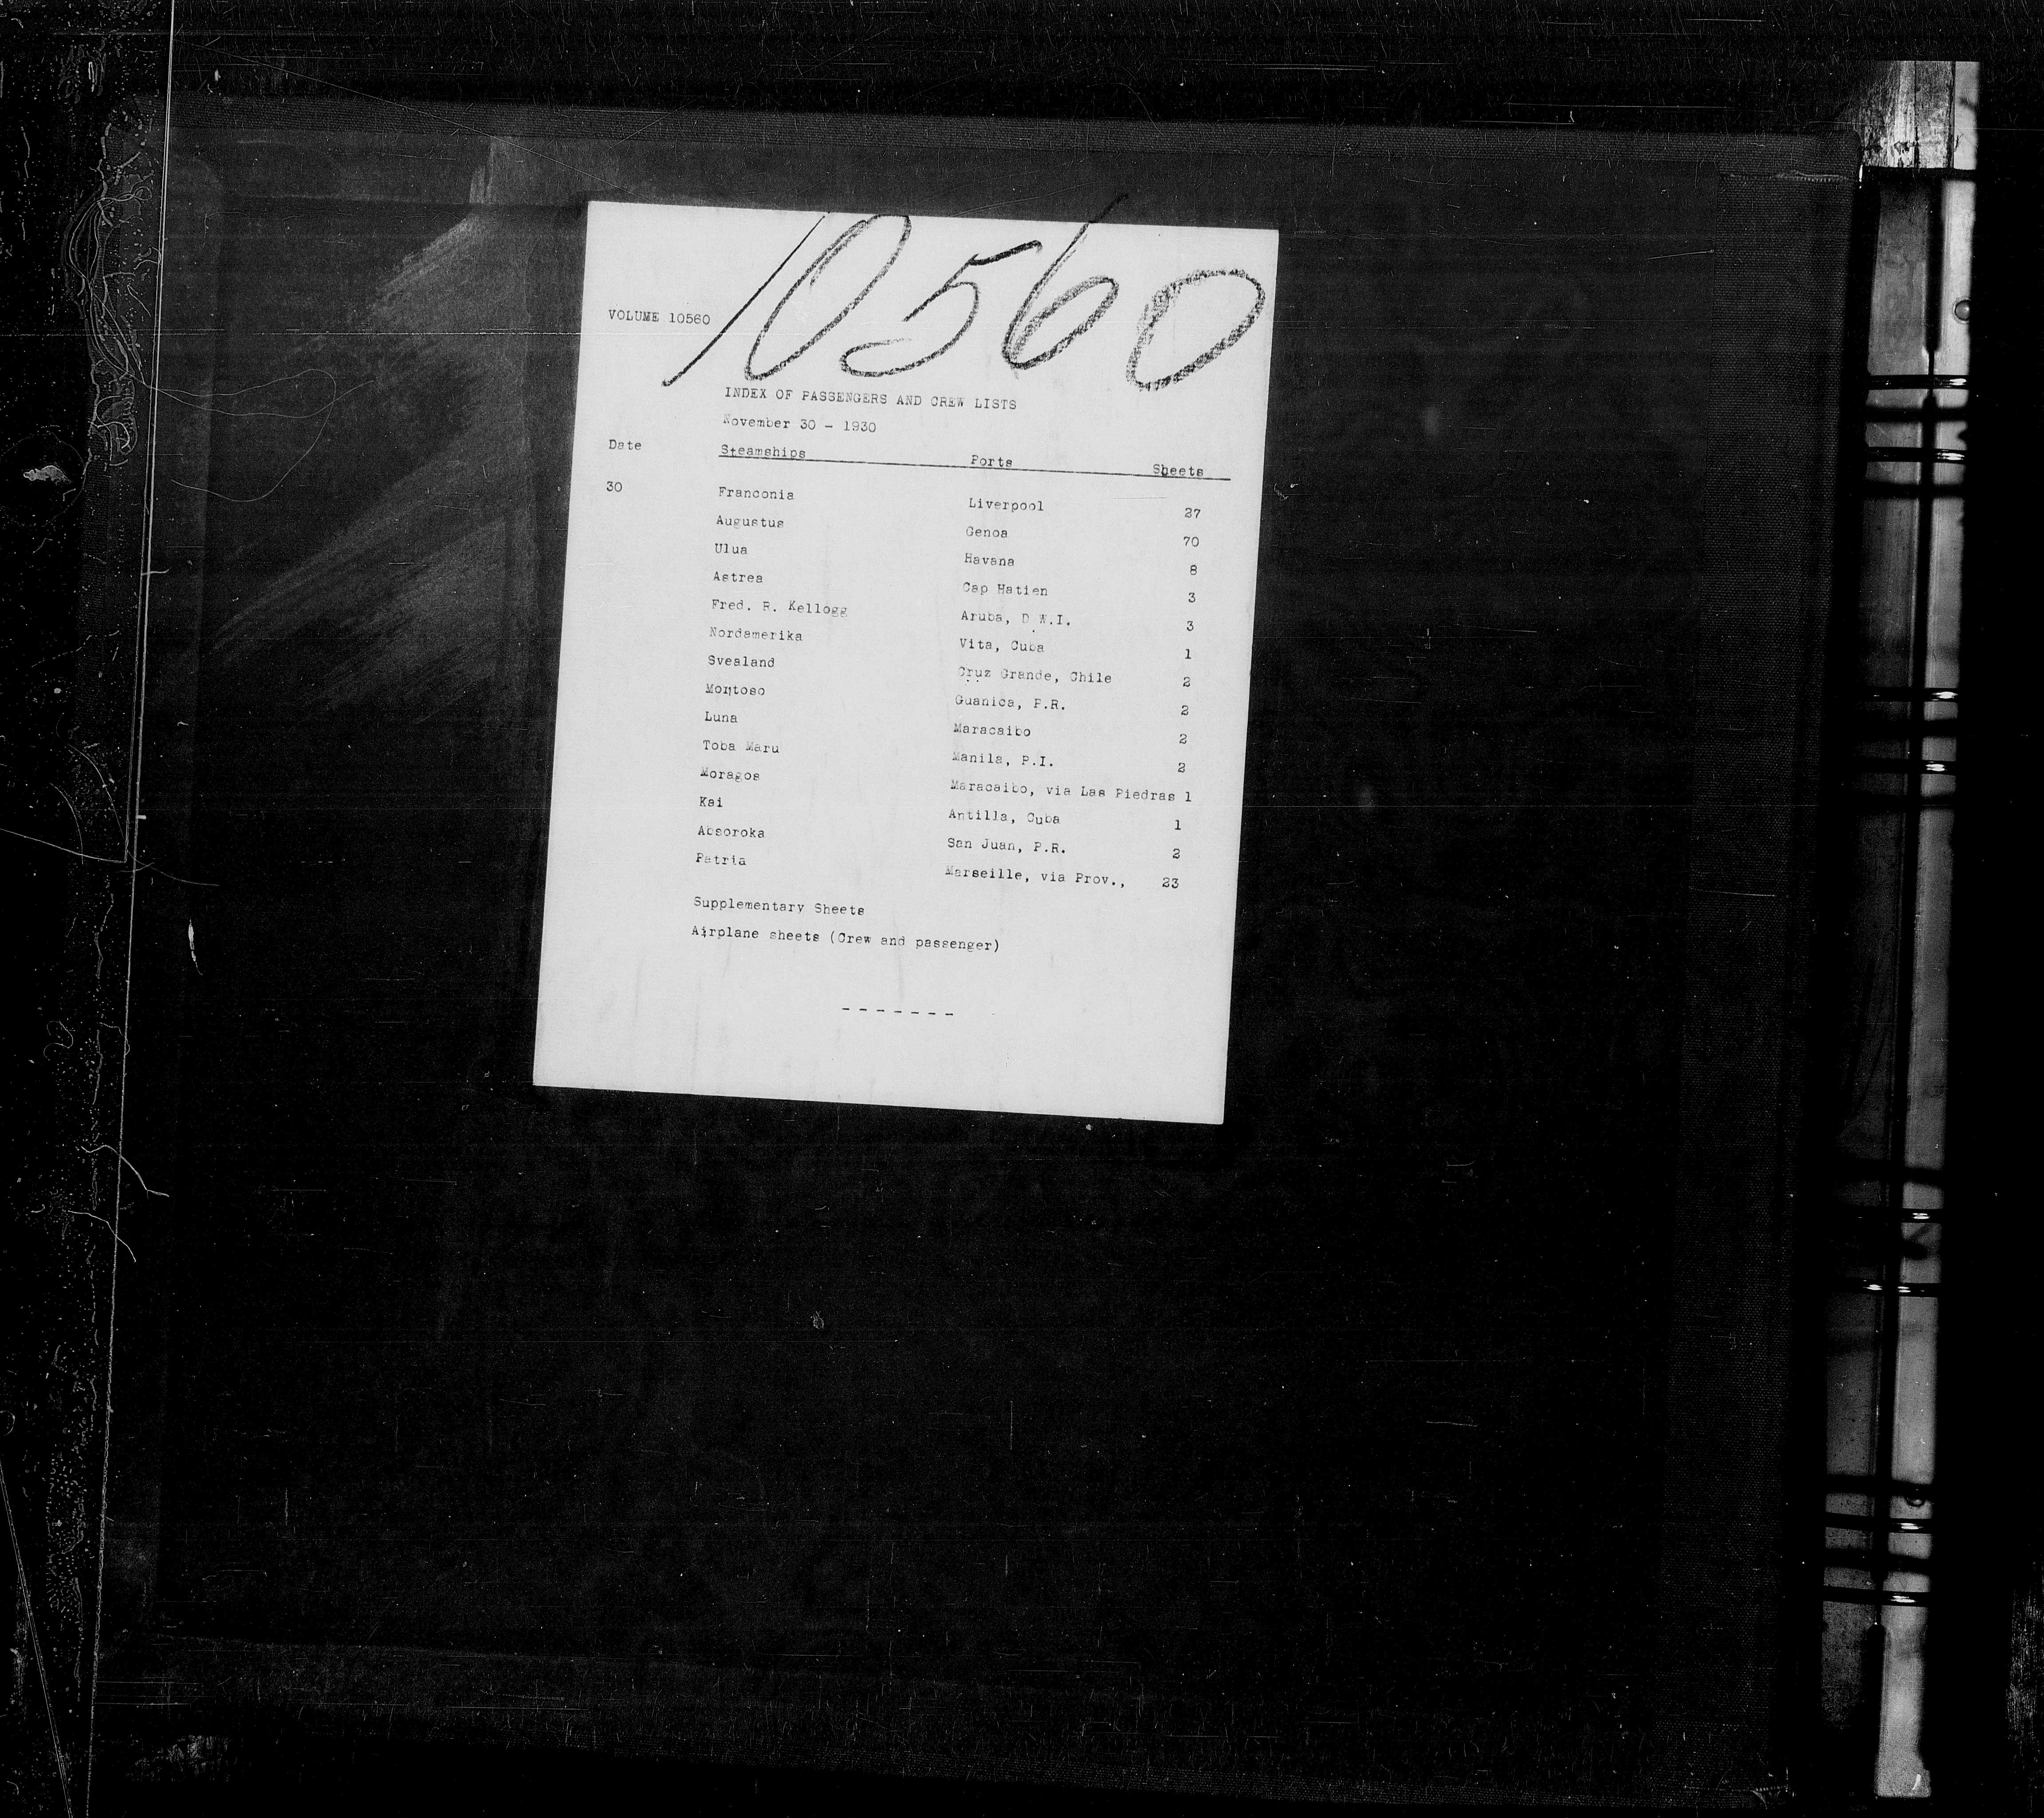 10560
VOLUME 10560
INDEX OF PASSENGERS AND CREW LISTS
November 30 - 1930
Date Steamships Ports Sheets
30 Franconia Liverpool 27
Augustus Genoa 70
Ulua Havana 8
Astrea Cap Hatien 3
Fred. R. Kellogg Aruba, D.W.I. 3
Nordamerika Vita, Cuba 1
Svealand Cruz Grande, Chile 2
Montoso Guanica, P.R. 2
Luna Maracaibo 2
Toba Maru Manila, P.I. 2
Moragos Maracaibo, via Las Piedras 1
Kai Antilla, Cuba 1
Absoroka San Juan, P.R. 2
Patria Marseille, via Prov., 23
Supplementary Sheets
Airplane sheets (Crew and passenger)
- - - - - - -